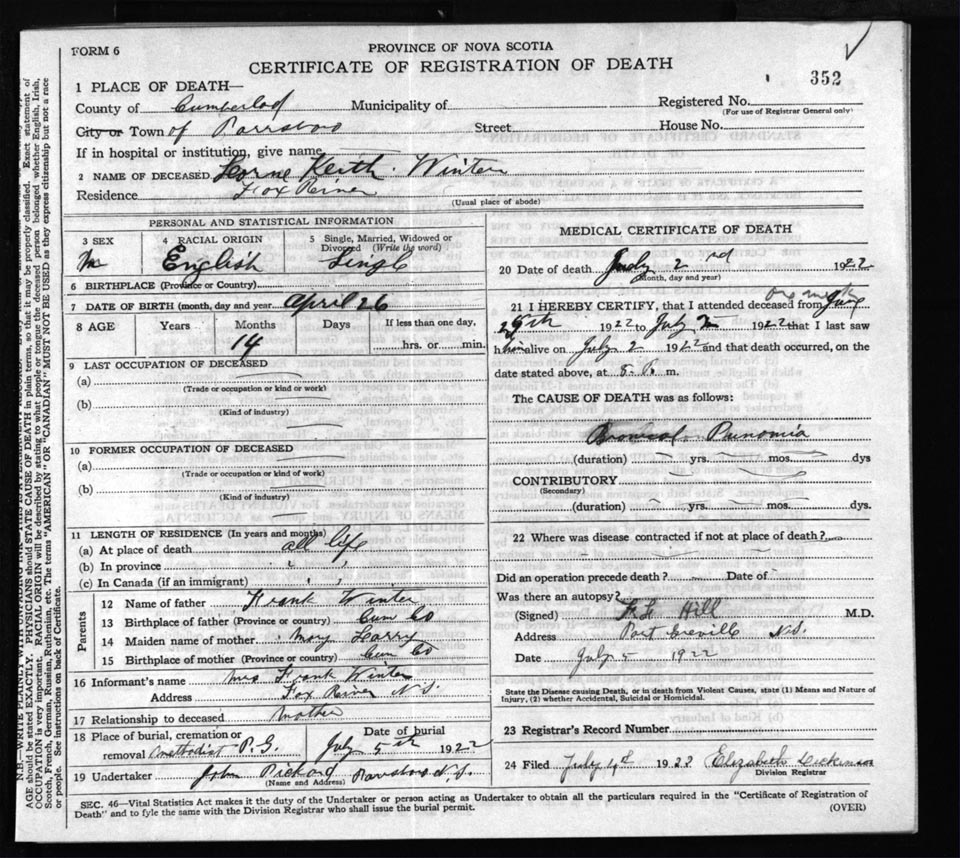 FORM 6
PROVINCE OF NOVA SCOTIA
CERTIFICATE OF REGISTRATION OF DEATH
352
1 PLACE OF DEATH—
County of Cumberlad Municipality of
Registered No.
(For use of Registrar General only)
City or Town of Parrsboro Street House No.
If in hospital or institution, give name
2 NAME OF DECEASED Lorne Keith Winter
Residence Fox River
(Usual place of abode)
PERSONAL AND STATISTICAL INFORMATION
3 SEX 4 RACIAL ORIGIN 5 Single, Married, Widowed or Divorced (Write the word)
M English Single
6 BIRTHPLACE (Province or Country)
7 DATE OF BIRTH (month, day and year) April 26
8 AGE Years Months Days If less than one day,
14 hrs. or min.
9 LAST OCCUPATION OF DECEASED
(a)
(Trade or occupation or kind or work)
(b)
(Kind of industry)
10 FORMER OCCUPATION OF DECEASED
(a)
(Trade or occupation or kind of work)
(b)
(Kind of industry)
11 LENGTH OF RESIDENCE (In years and months)
(a) At place of death all life
(b) In province
(c) In Canada (if an immigrant)
Parents
12 Name of father Frank Winter
13 Birthplace of father (Province or country) Cum Co
14 Maiden name of mother Mary
15 Birthplace of mother (Province or country) Cum Co
16 Informant's name Mrs Frank Winter
Address Fox River N.S.
17 Relationship to deceased mother
18 Place of burial, cremation or removal Methodist P.G.
Date of burial July 5th 1922
19 Undertaker John Pickard Parrsboro N.S.
(Name and Address)
MEDICAL CERTIFICATE OF DEATH
20 Date of death July 2nd 1922
(Month, day and year)
21 I HEREBY CERTIFY, that I attended deceased from one week June
29th 1922 to July 2 1922 that I last saw
him alive on July 2 1922 and that death occurred, on the
date stated above, at 8 m.
The CAUSE OF DEATH was as follows:
Pnunomia
(duration) yrs. mos. dys
CONTRIBUTORY
(Secondary)
(duration) yrs. mos. dys.
22 Where was disease contracted if not at place of death?
Did an operation precede death? Date of
Was there an autopsy?
(Signed) F. L. Hill M.D.
Address Port Greville N.S.
Date July 5 1922
State the Disease causing Death, or in death from Violent Causes, state (1) Means and Nature of
Injury, (2) whether Accidental, Suicidal or Homicidal.
23 Registrar's Record Number
24 Filed July 4th 1922 Elizabeth Dickinson
Division Registrar
SEC. 46—Vital Statistics Act makes it the duty of the Undertaker or person acting as Undertaker to obtain all the particulars required in the "Certificate of Registration of
Death" and to fyle the same with the Division Registrar who shall issue the burial permit.
(OVER)
N.B.—WRITE PLAINLY WITH
AGE should be stated EXACTLY. PHYSICIANS should STATE CAUSE OF DEATH in plain terms, so that it may be properly classified. Exact statement of
OCCUPATION is very important. RACIAL ORIGIN will be described by stating to what people or tongue the deceased person belonged whether English, Irish,
Scotch, French, German, Russian, Ruthenian, etc. The terms "AMERICAN" OR "CANADIAN" MUST NOT BE USED as they express citizenship but not a race
or people. See instructions on back of Certificate.